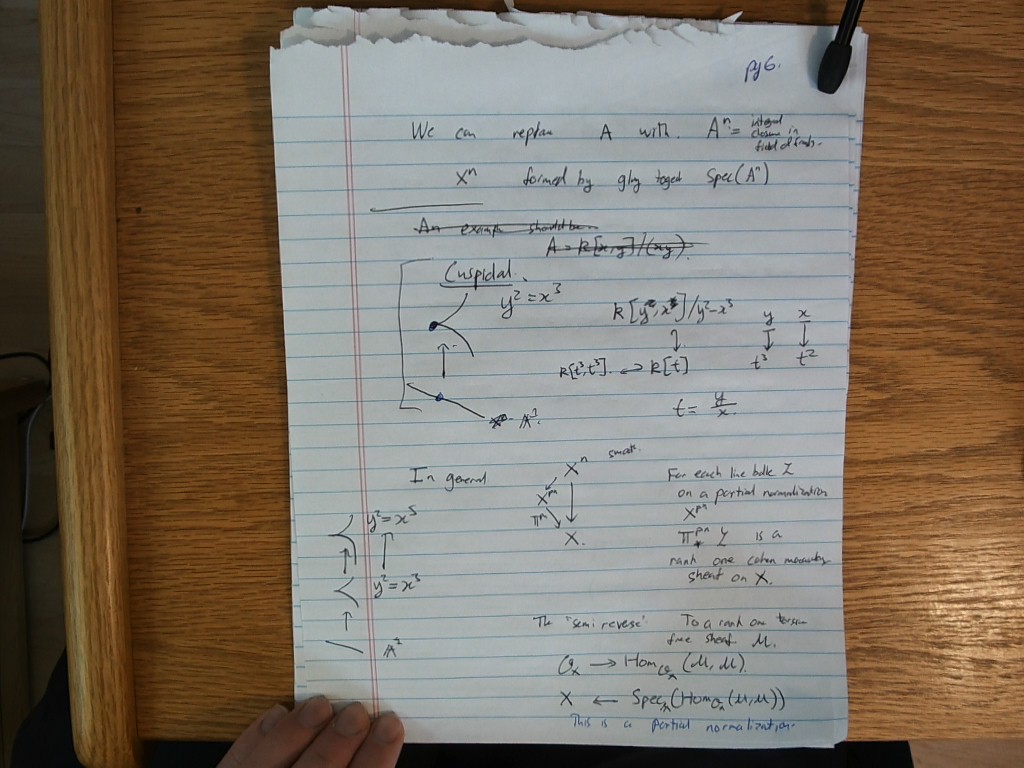 pg 6.
We can replace A with. Aⁿ = integral closure in field of fracs.
Xⁿ formed by gluing together Spec(Aⁿ)
An example should be
A = k[x,y]/(xy).
Cuspidal.
y² = x³
k[y, x]/y²-x³
y x
k[t²,t³] ↪ k[t]
t³ t²
t = y/x
In general
Xⁿ smooth
X^pn
π^pn
X.
For each line bdle L
on a partial normalization
X^pn
π^pn_* L is a
rank one cohen macaulay
sheaf on X.
y² = x⁵
y² = x³
The "semi reverse" To a rank one torsion
free sheaf M.
O_X → Hom_{O_X}(M, M).
X ← Spec_X(Hom_{O_X}(M,M))
This is a partial normalization.